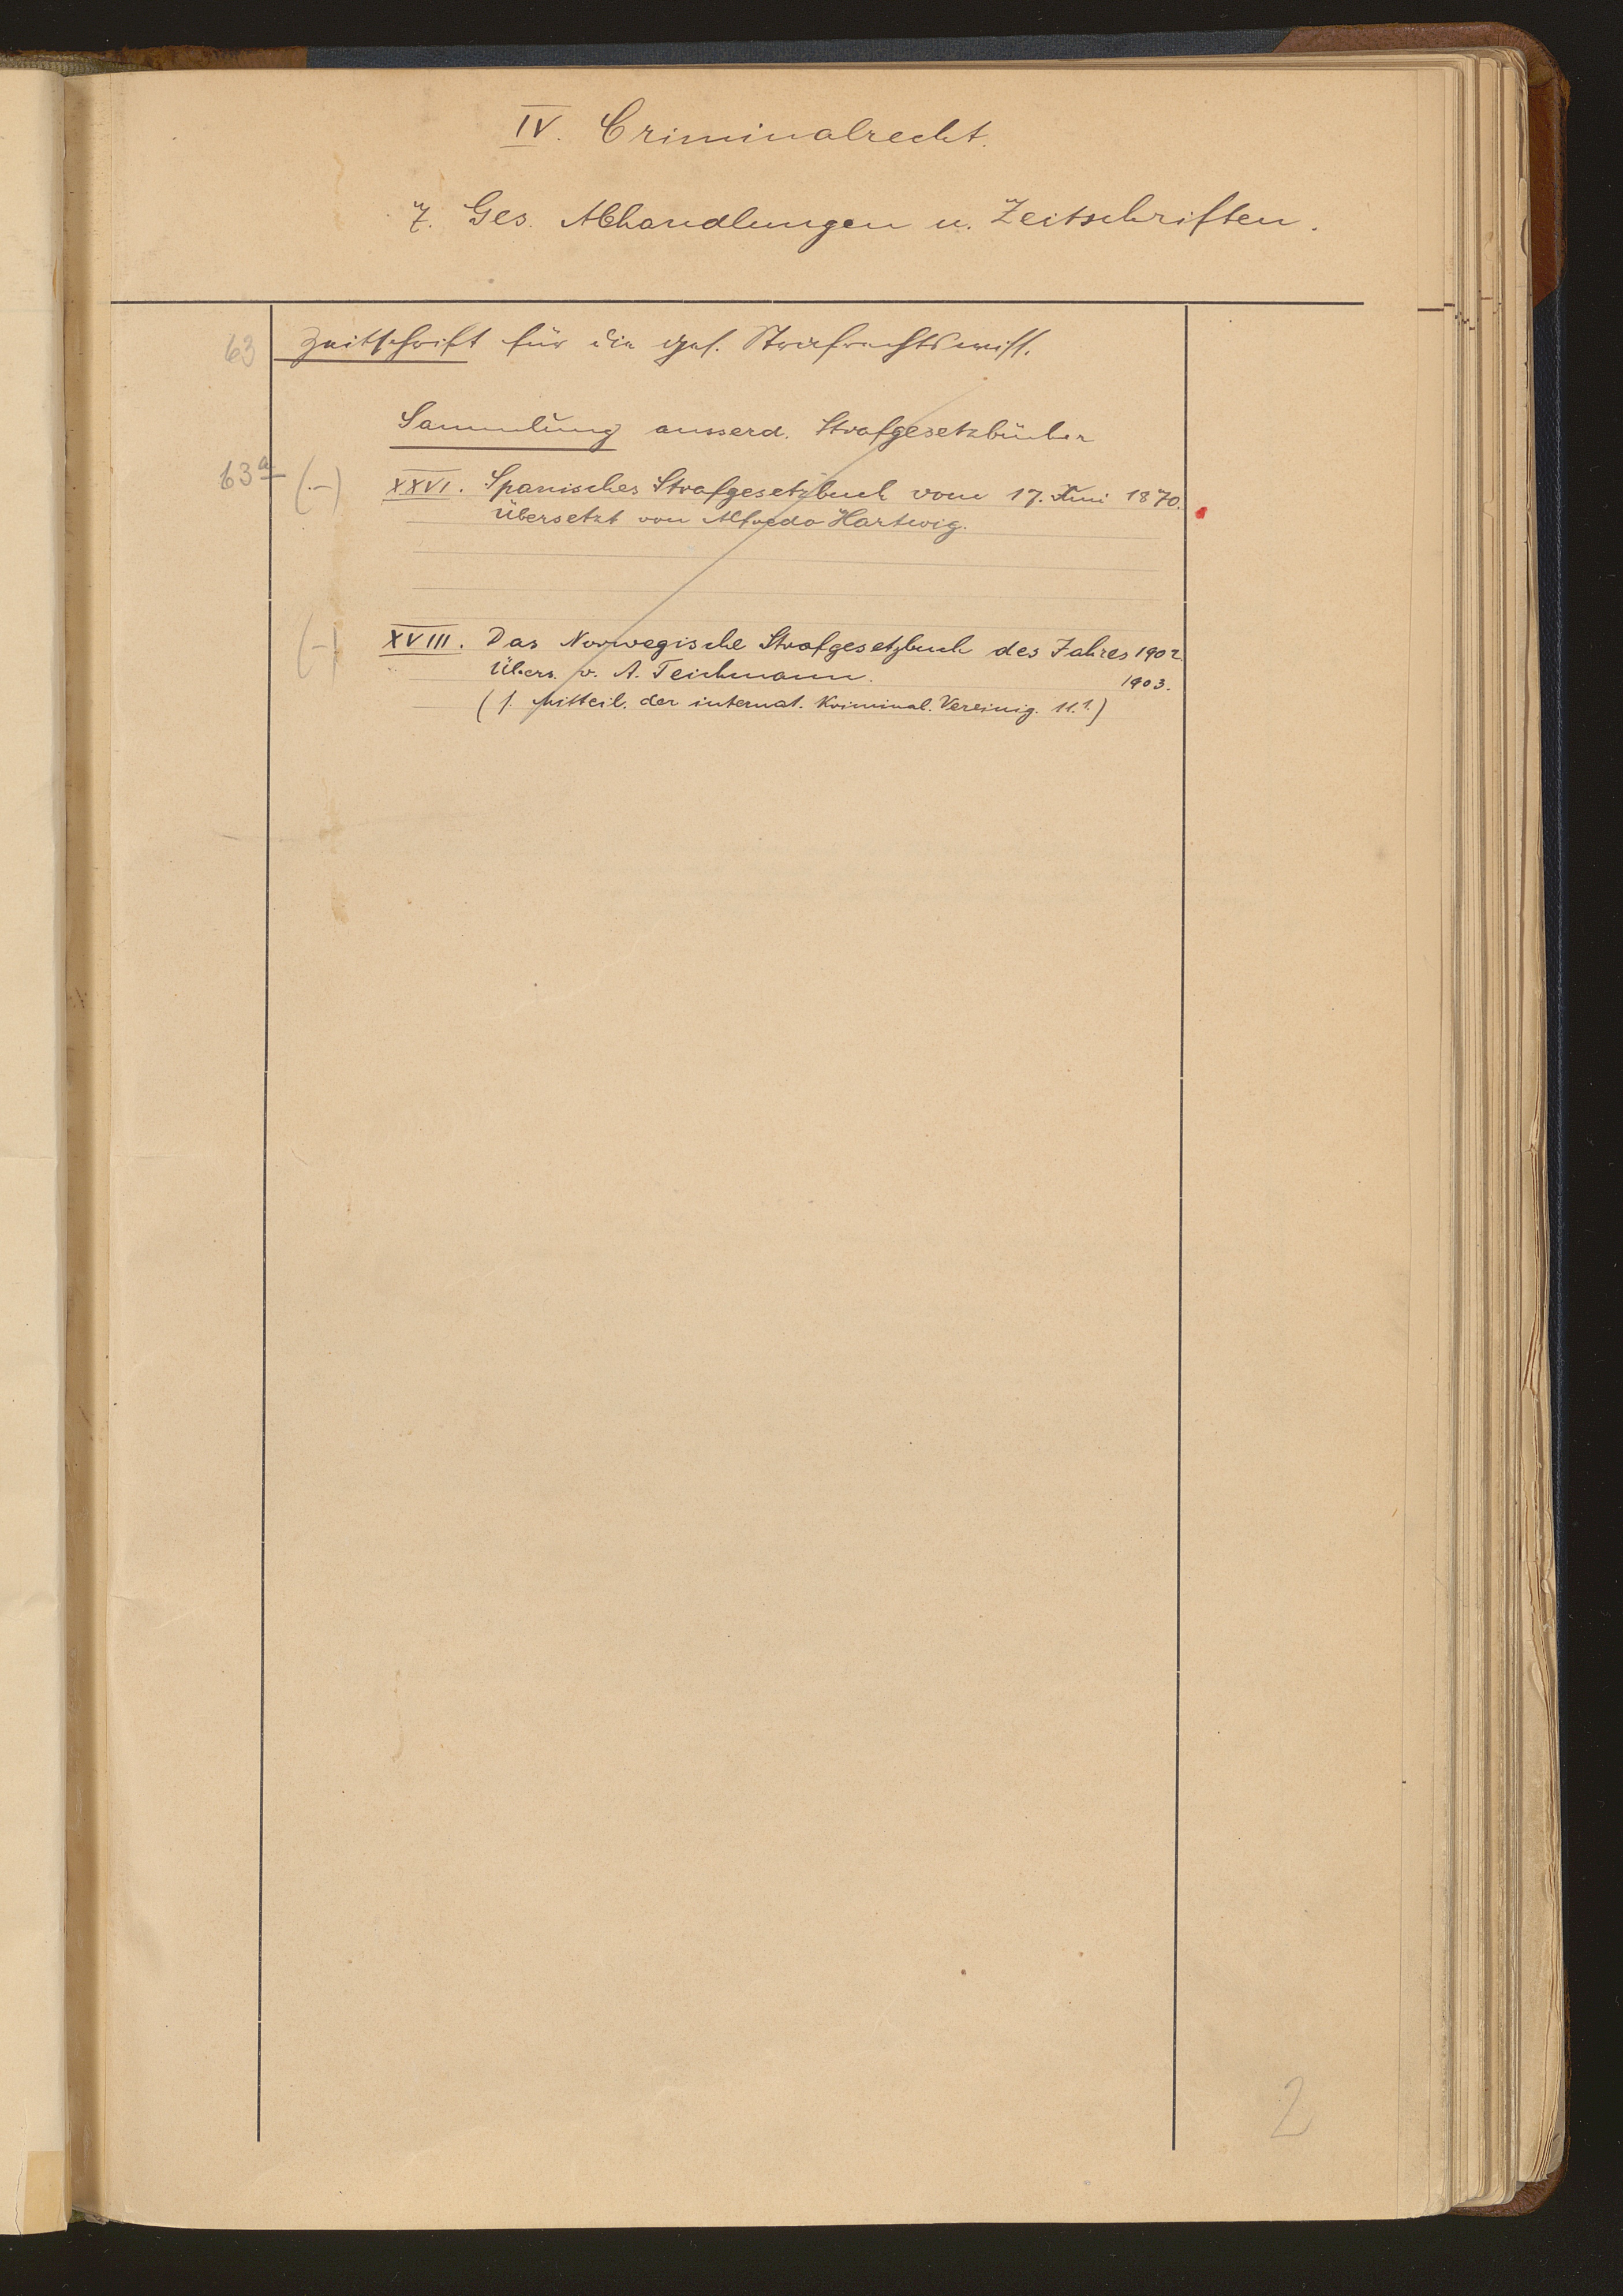 IV. Criminalrecht.
7. Ges. Abhandlungen u. Zeitschriften.
63 Zeitschrift für die ges. Strafrechtswiss.
Sammlung ausserd. Strafgesetzbücher
63a (-) XXVI. Spanisches Strafgesetzbuch vom 17. Juni 1870.
Übersetzt von Alfredo Hartwig.
(-) XVIII. Das Norwegische Strafgesetzbuch des Jahres 1902.
Übers. v. A. Teichmann. 1903.
(s. Mitteil. der internat. Kriminal. Vereinig. 11.1.)
2